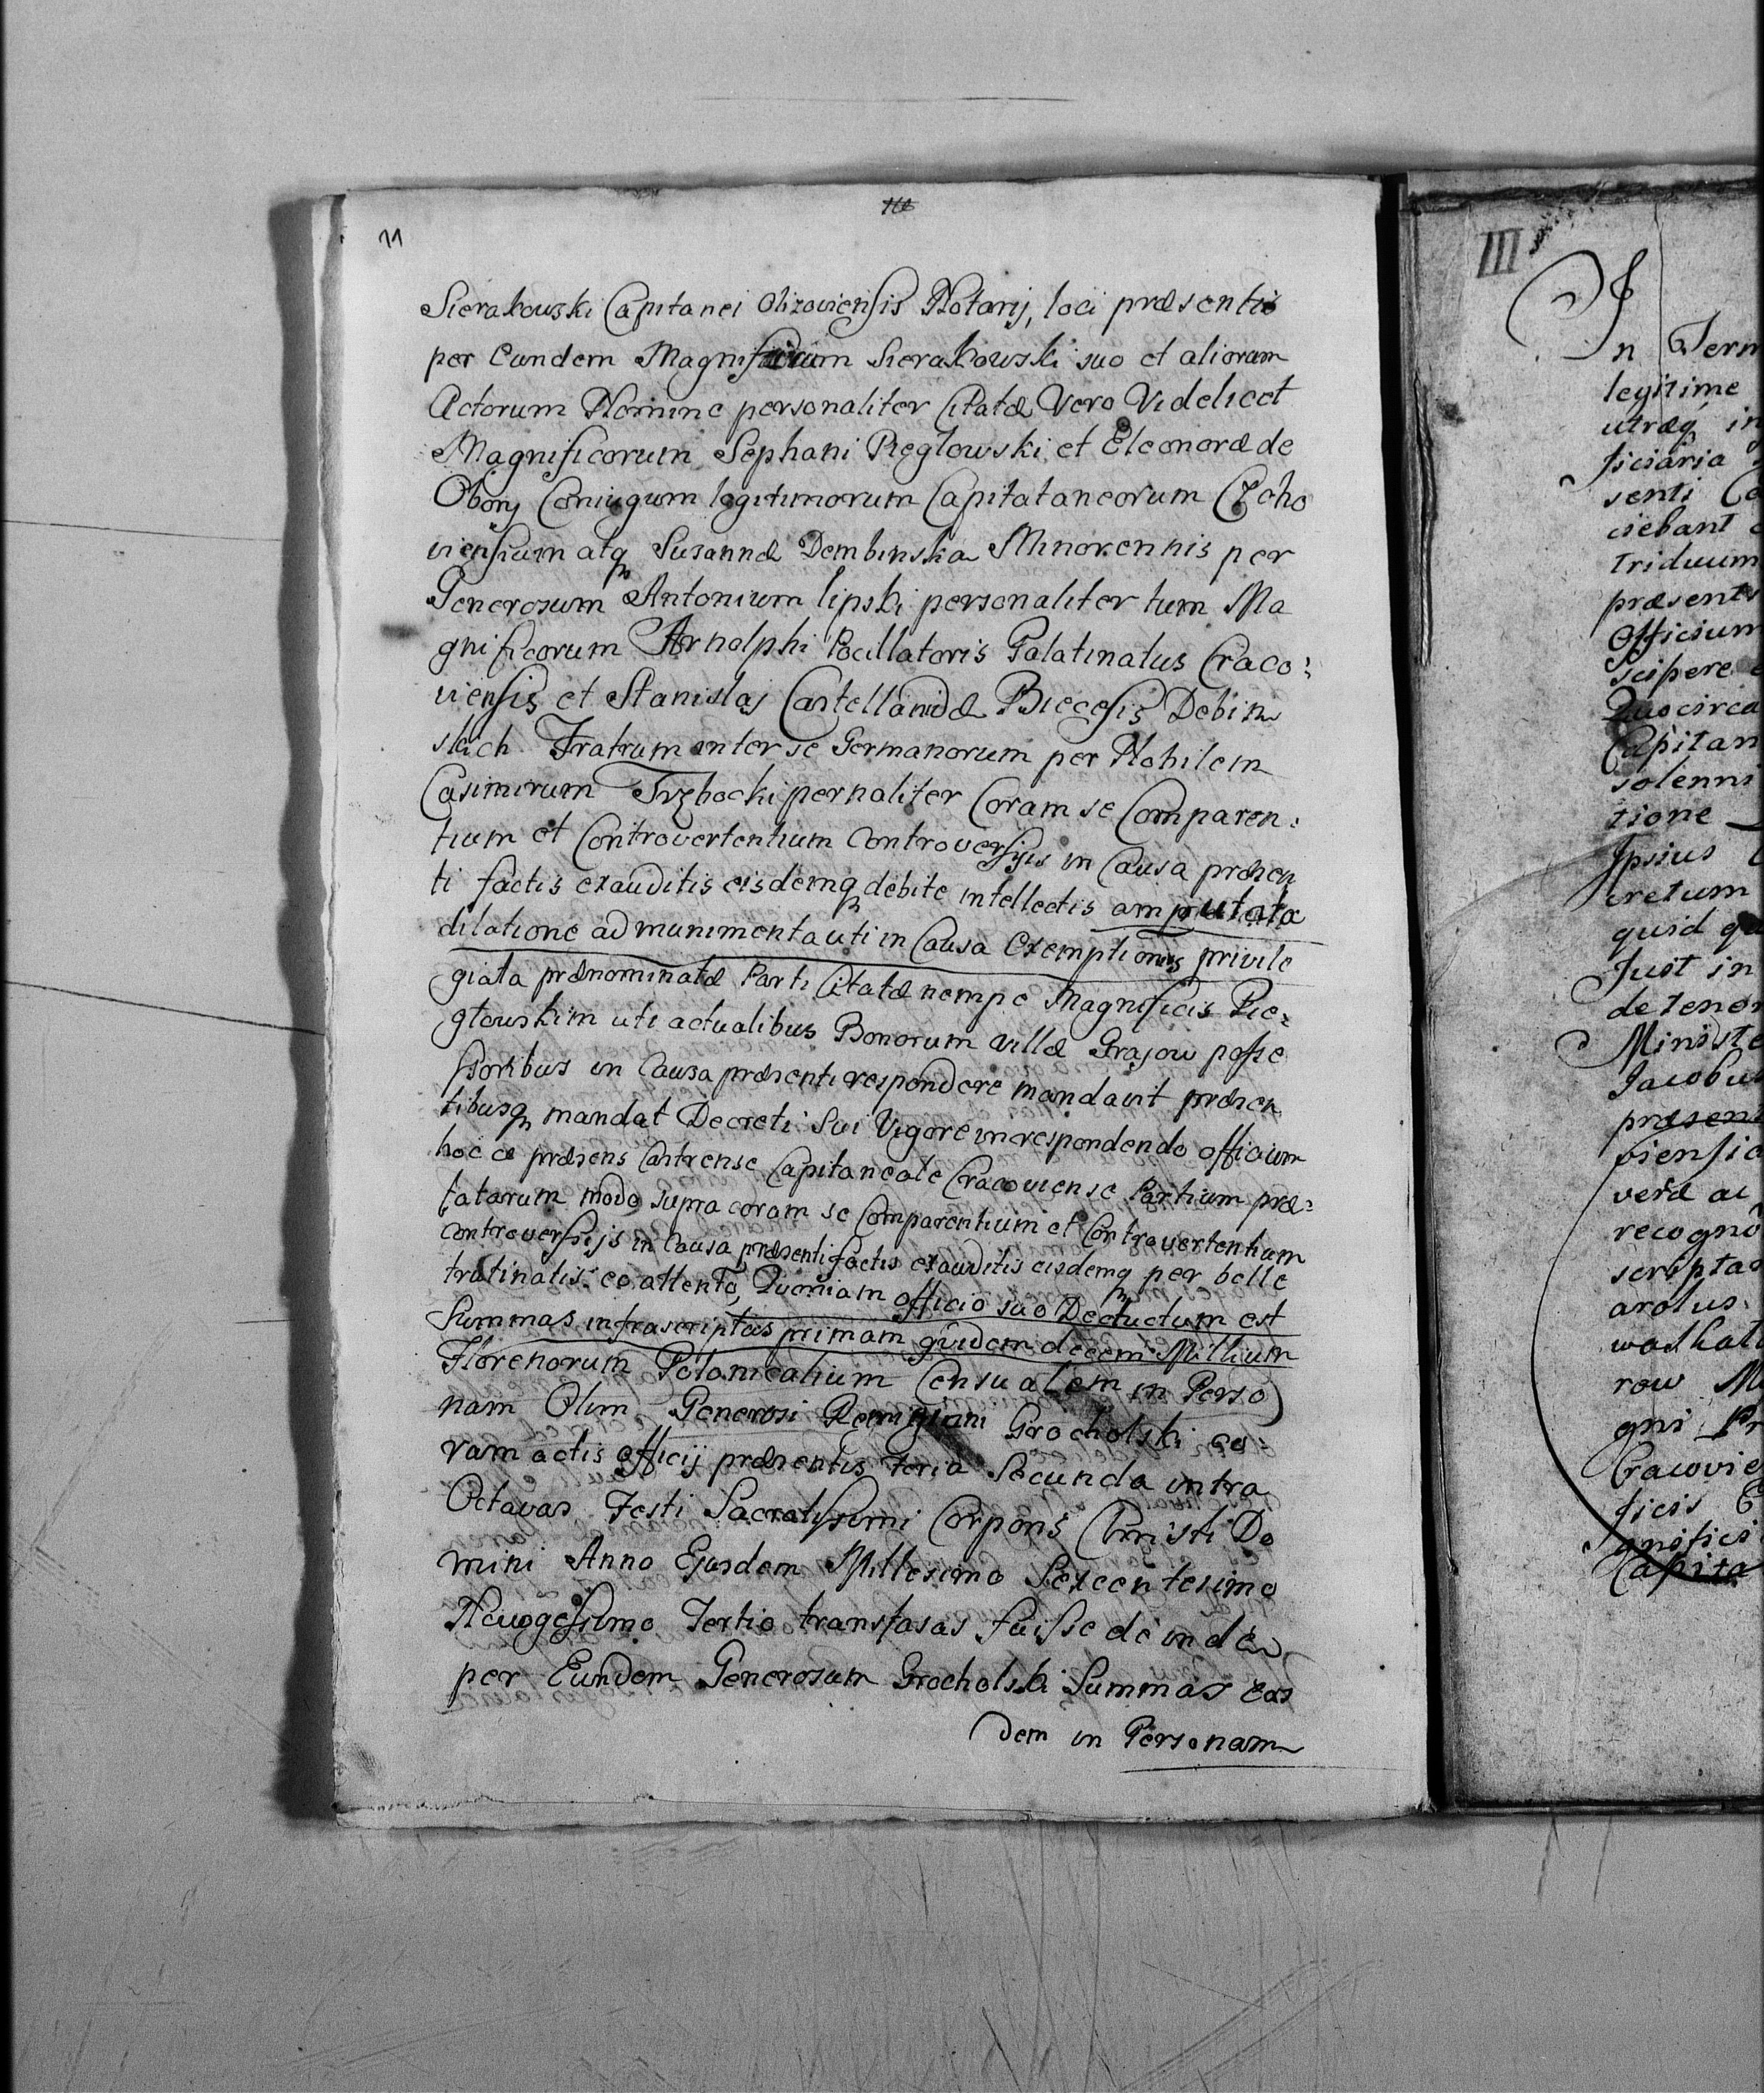 11
Sierakowski Capitanei Olszoviensis Notarij, loci præsentis
per Eundem Magnificum Sierakowski suo et aliorum
Actorum Nomine personaliter Citatæ Vero Videlicet
Magnificorum Sephani Pieglowski et Eleonoræ de
Obory Coniugum legitimorum Capitataneorum Czcho
viensium atq Susannæ Dembinska Minorennis per
Generosum Antonium lipski personaliter tum Ma
gnificorum Arnolphi Pocillatoris Palatinatus Craco:
viensis et Stanislaj Castellanidæ Biecesis Debin
skich Fratrum inter se Germanorum per Nobilem
Casimirum Trzbocki pernaliter Coram se Comparen:
tium et Controvertentium Controversijs in Causa præsen
ti factis exauditis eisdemq debite intellectis amputata
dilatione ad munimenta uti in Causa Exemptionis privile
giata prænominatæ Parti Citatæ nempe Magnificis Pie:
glowskim uti actualibus Bonorum villæ Grajow posse
ssoribus in Causa præsenti respondere mandavit præsen
tibusq mandat Decreti Sui Vigore in respondendo officium
hoc ce præsens Castrense Capitaneale Cracoviense Partium præ:
tatarum modo supra coram se Comparentium et Controvertentium
Controversijs in Causa præsenti factis exauditis eisdemq per belle
trutinatis: eo attento, Quoniam officio suo Deductum est
Summas infrascriptas primam quidem decem Millium
Florenorum Polonicalium Censualem in Perso
nam Olim Generosi Remigiani Grocholski co
ram actis officij præsentis Feria Secunda intra
Octavas Festi Sacratissimi Corporis Christi Do
mini Anno Ejusdem Millesimo Sexcentesimo
Nonogesimo Tertio transfasas fuisse deinde
per Eundem Generosum Grocholski Summas eas
dem in Personam
III
In Term
legitime
utræq in
ficiaria
senti Ca
ciebant
triduum
præsent
Officium
scipere
Quocirca
Capitan
solenni
tione
Ipsius
cretum
quid
Just in
de tenor
Ministe
Jacobu
præsent
viensi
verd ac
recogno
scripta
arolus
wad
row M
gni Pr
Cracovie
ficis
gnifici
Capita